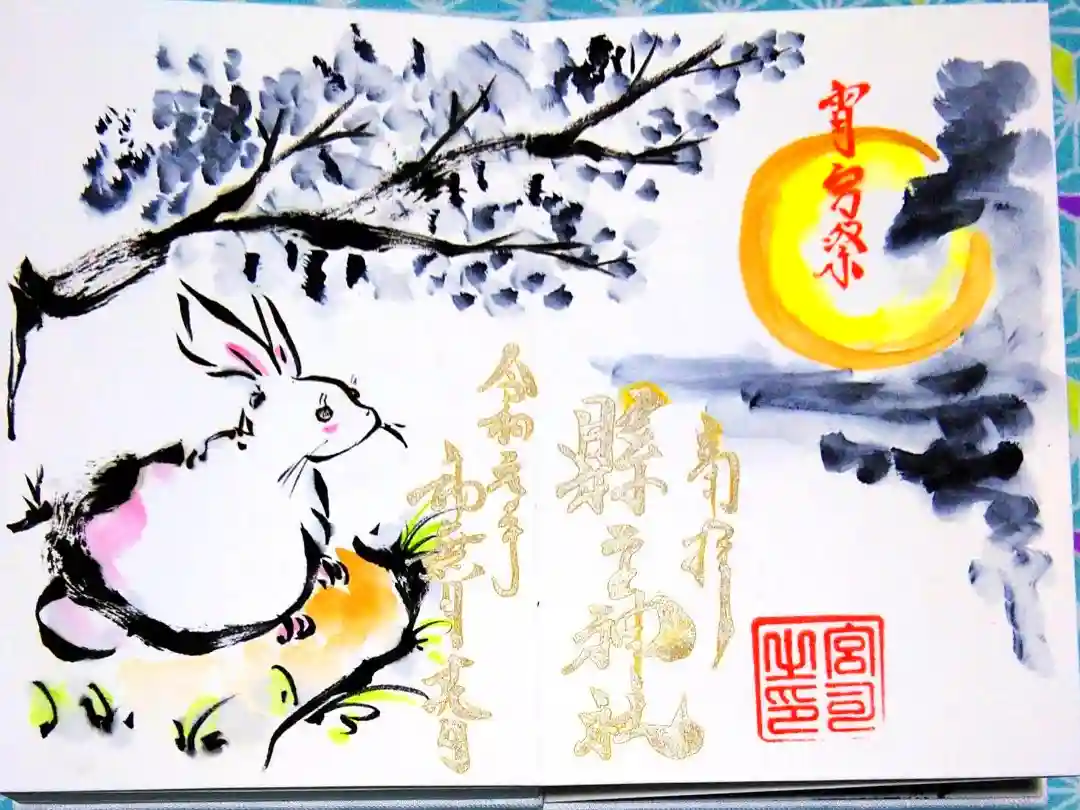 宵宮祭
奉拝
縣主神社
令和元年
神無月
宮司之印